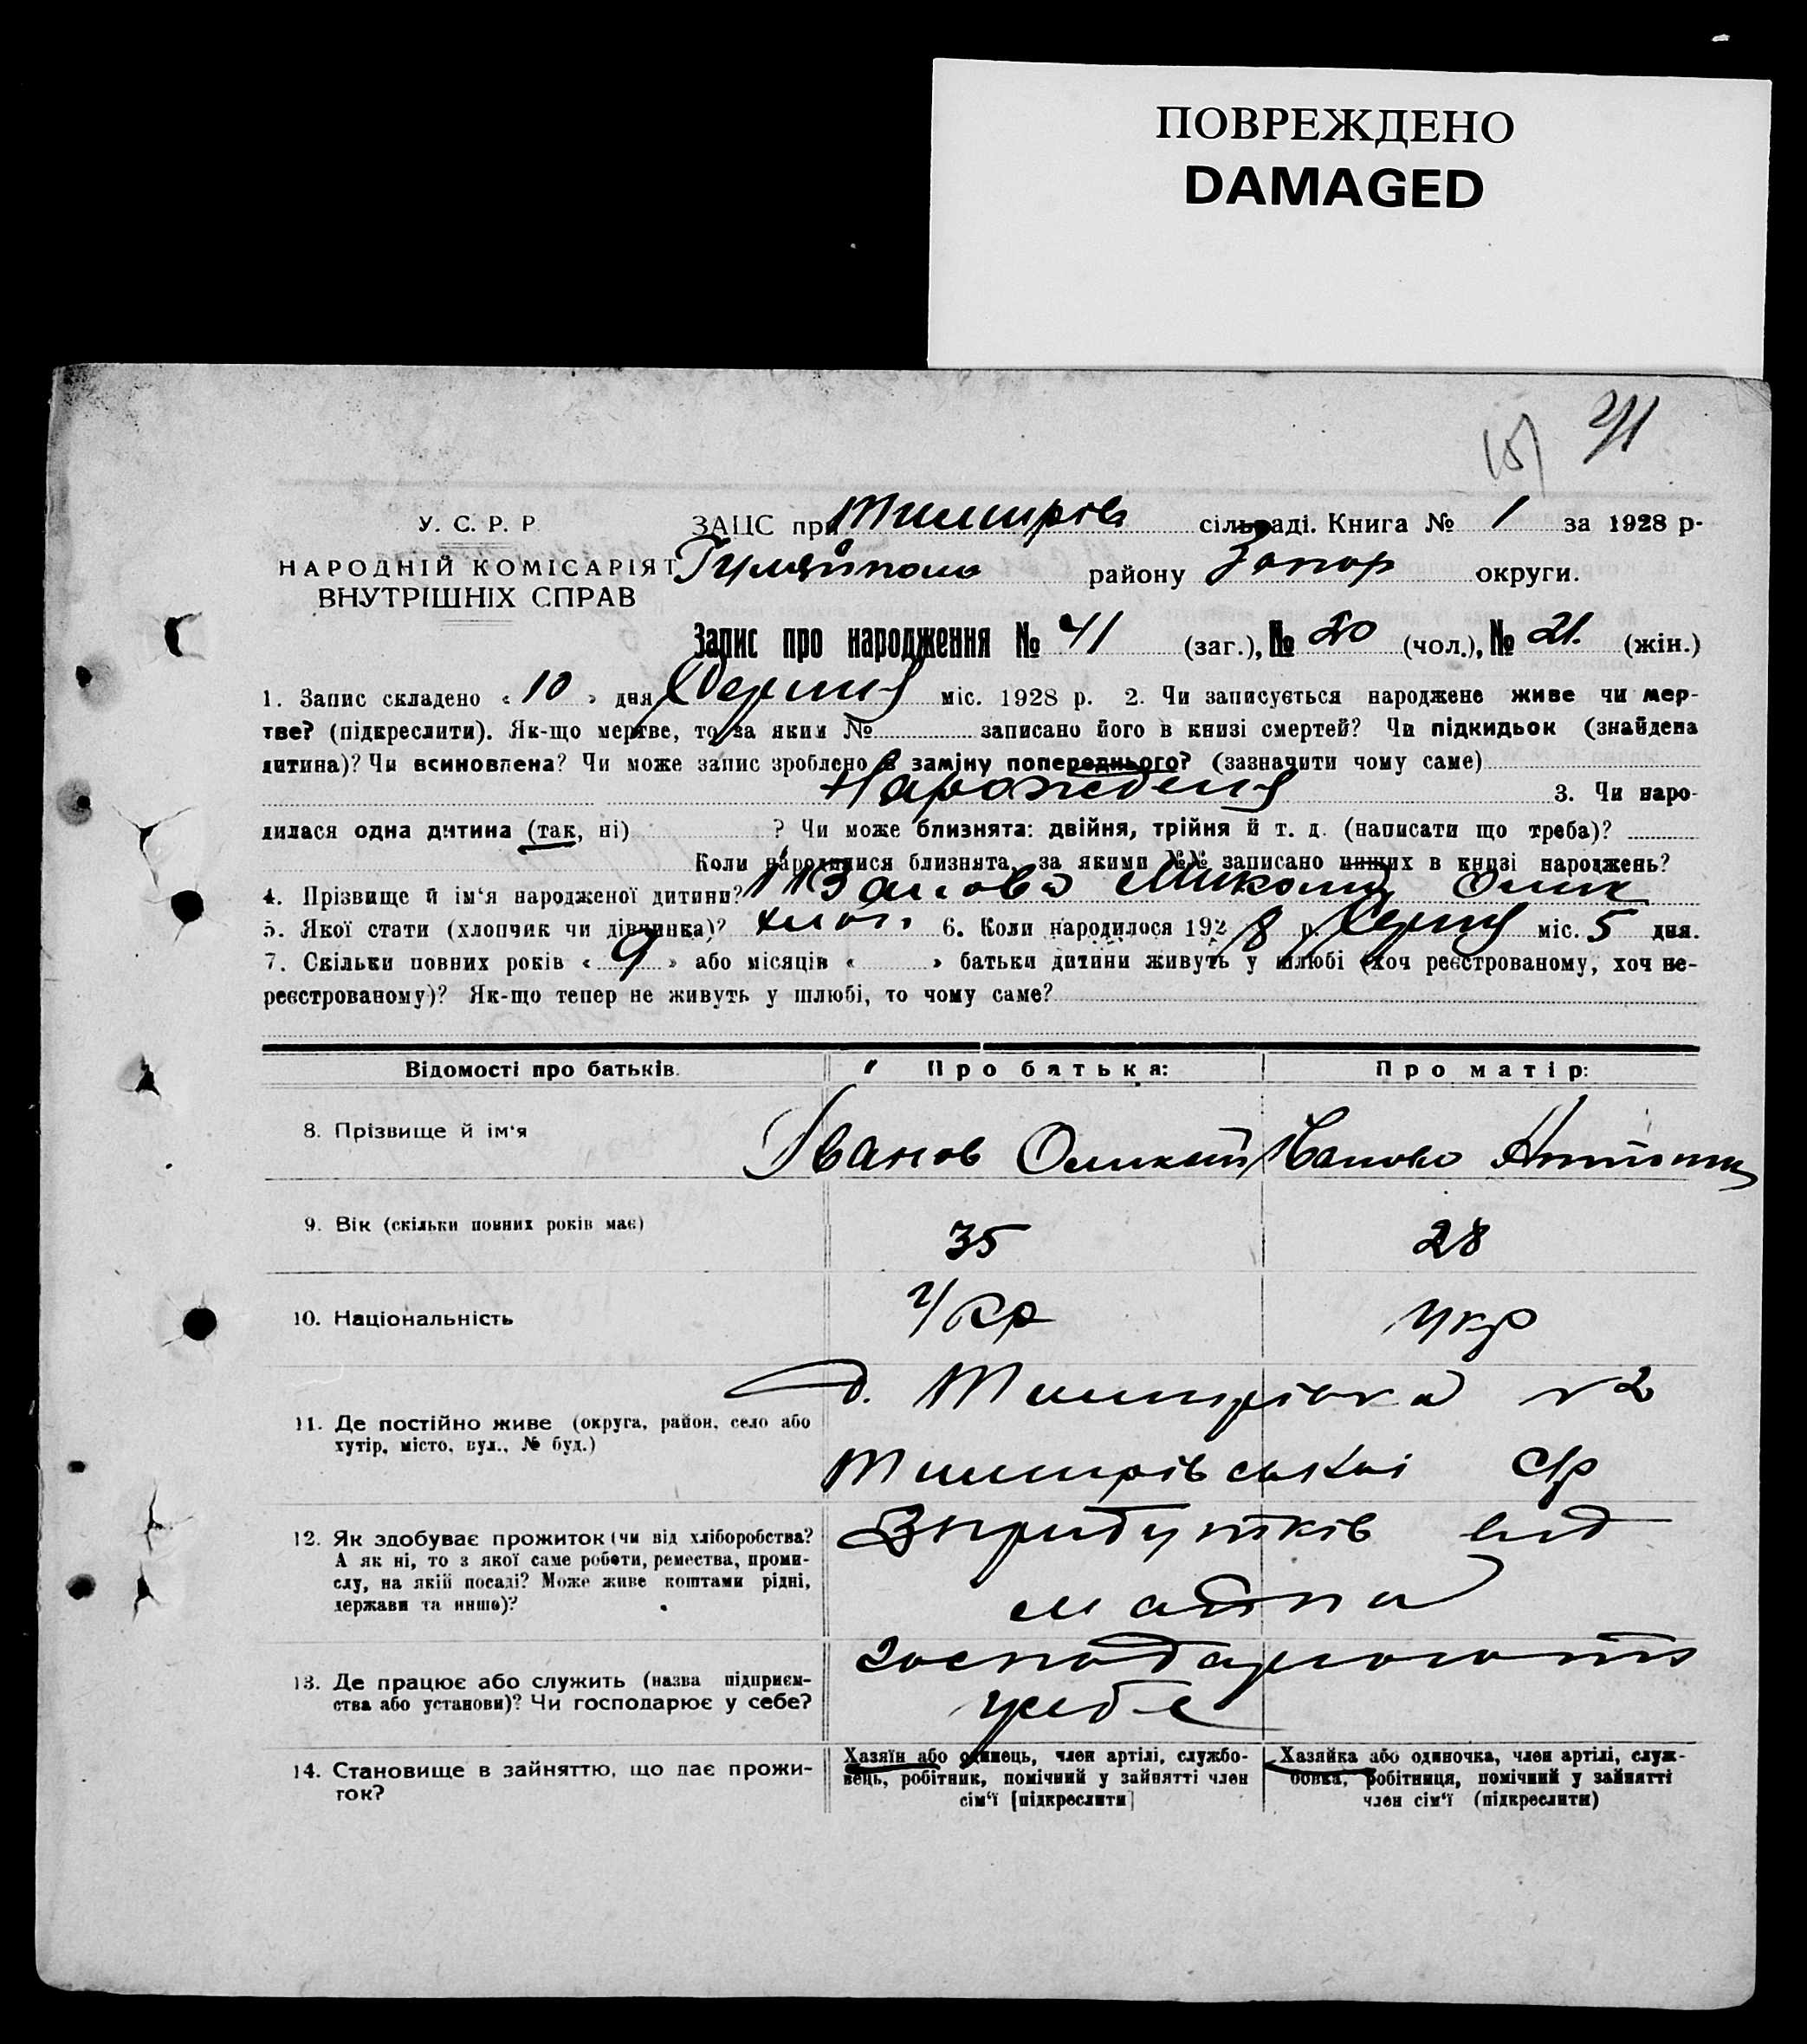 ПОВРЕЖДЕНО
DAMAGED
41
У. С. Р. Р.
ЗАЦС при сільраді. Книга № 1 за 1928 р.
НАРОДНІЙ КОМІСАРІЯТ
району Запор округи.
ВНУТРІШНІХ СПРАВ
Запис про народження № 41 (заг.), № 20 (чол.), № 21. (жін.)
1. Запис складено « 10 » дня Серпня міс. 1928 р. 2. Чи записується народжене живе чи мер-
тве? (підкреслити). Як-що мертве, то за яким № записано його в книзі смертей? Чи підкидьок (знайдена
дитина)? Чи всиновлена? Чи може запис зроблено в заміну попереднього? (зазначити чому саме)
Нарождения 3. Чи наро-
дилася одна дитина (так, ні) ? Чи може близнята: двійня, трійня й т. д. (написати що треба)?
Коли народилися близнята, за якими №№ записано инших в книзі народжень?
4. Прізвище й ім‘я народженої дитини? Микола
5. Якої стати (хлопчик чи дівчинка)? хлоп 6. Коли народилося 1928 р. Серпня міс. 5 дня.
7. Скільки повних років « 9 » або місяців « » батьки дитини живуть у шлюбі (хоч реєстрованому, хоч не-
реєстрованому)? Як-що тепер не живуть у шлюбі, то чому саме?
Відомості про батьків. Про батька: Про матір:
8. Прізвище й ім‘я Іванов
9. Вік (скільки повних років має) 35 28
10. Національність Укр Укр
д. Тимирівка № 2
11. Де постійно живе (округа, район, село або
хутір, місто, вул., № буд.)
Тимирівської с/р
12. Як здобуває прожиток (чи від хліборобства? Зприбутків від
А як ні, то з якої саме роботи, ремества, проми-
слу, на якій посаді? Може живе коштами рідні,
держави та инше)?
майна
господарюють
13. Де працює або служить (назва підприєм-
ства або установи)? Чи господарює у себе?
усебе
14. Становище в зайняттю, що дає прожи-
ток?
Хазяїн або одинець, член артілі, службо-
вець, робітник, помічний у зайнятті член
сім‘ї [підкреслити]
Хазяйка або одиночка, член артілі, служ-
бовка, робітниця, помічний у зайнятті
член сім‘ї (підкреслити)